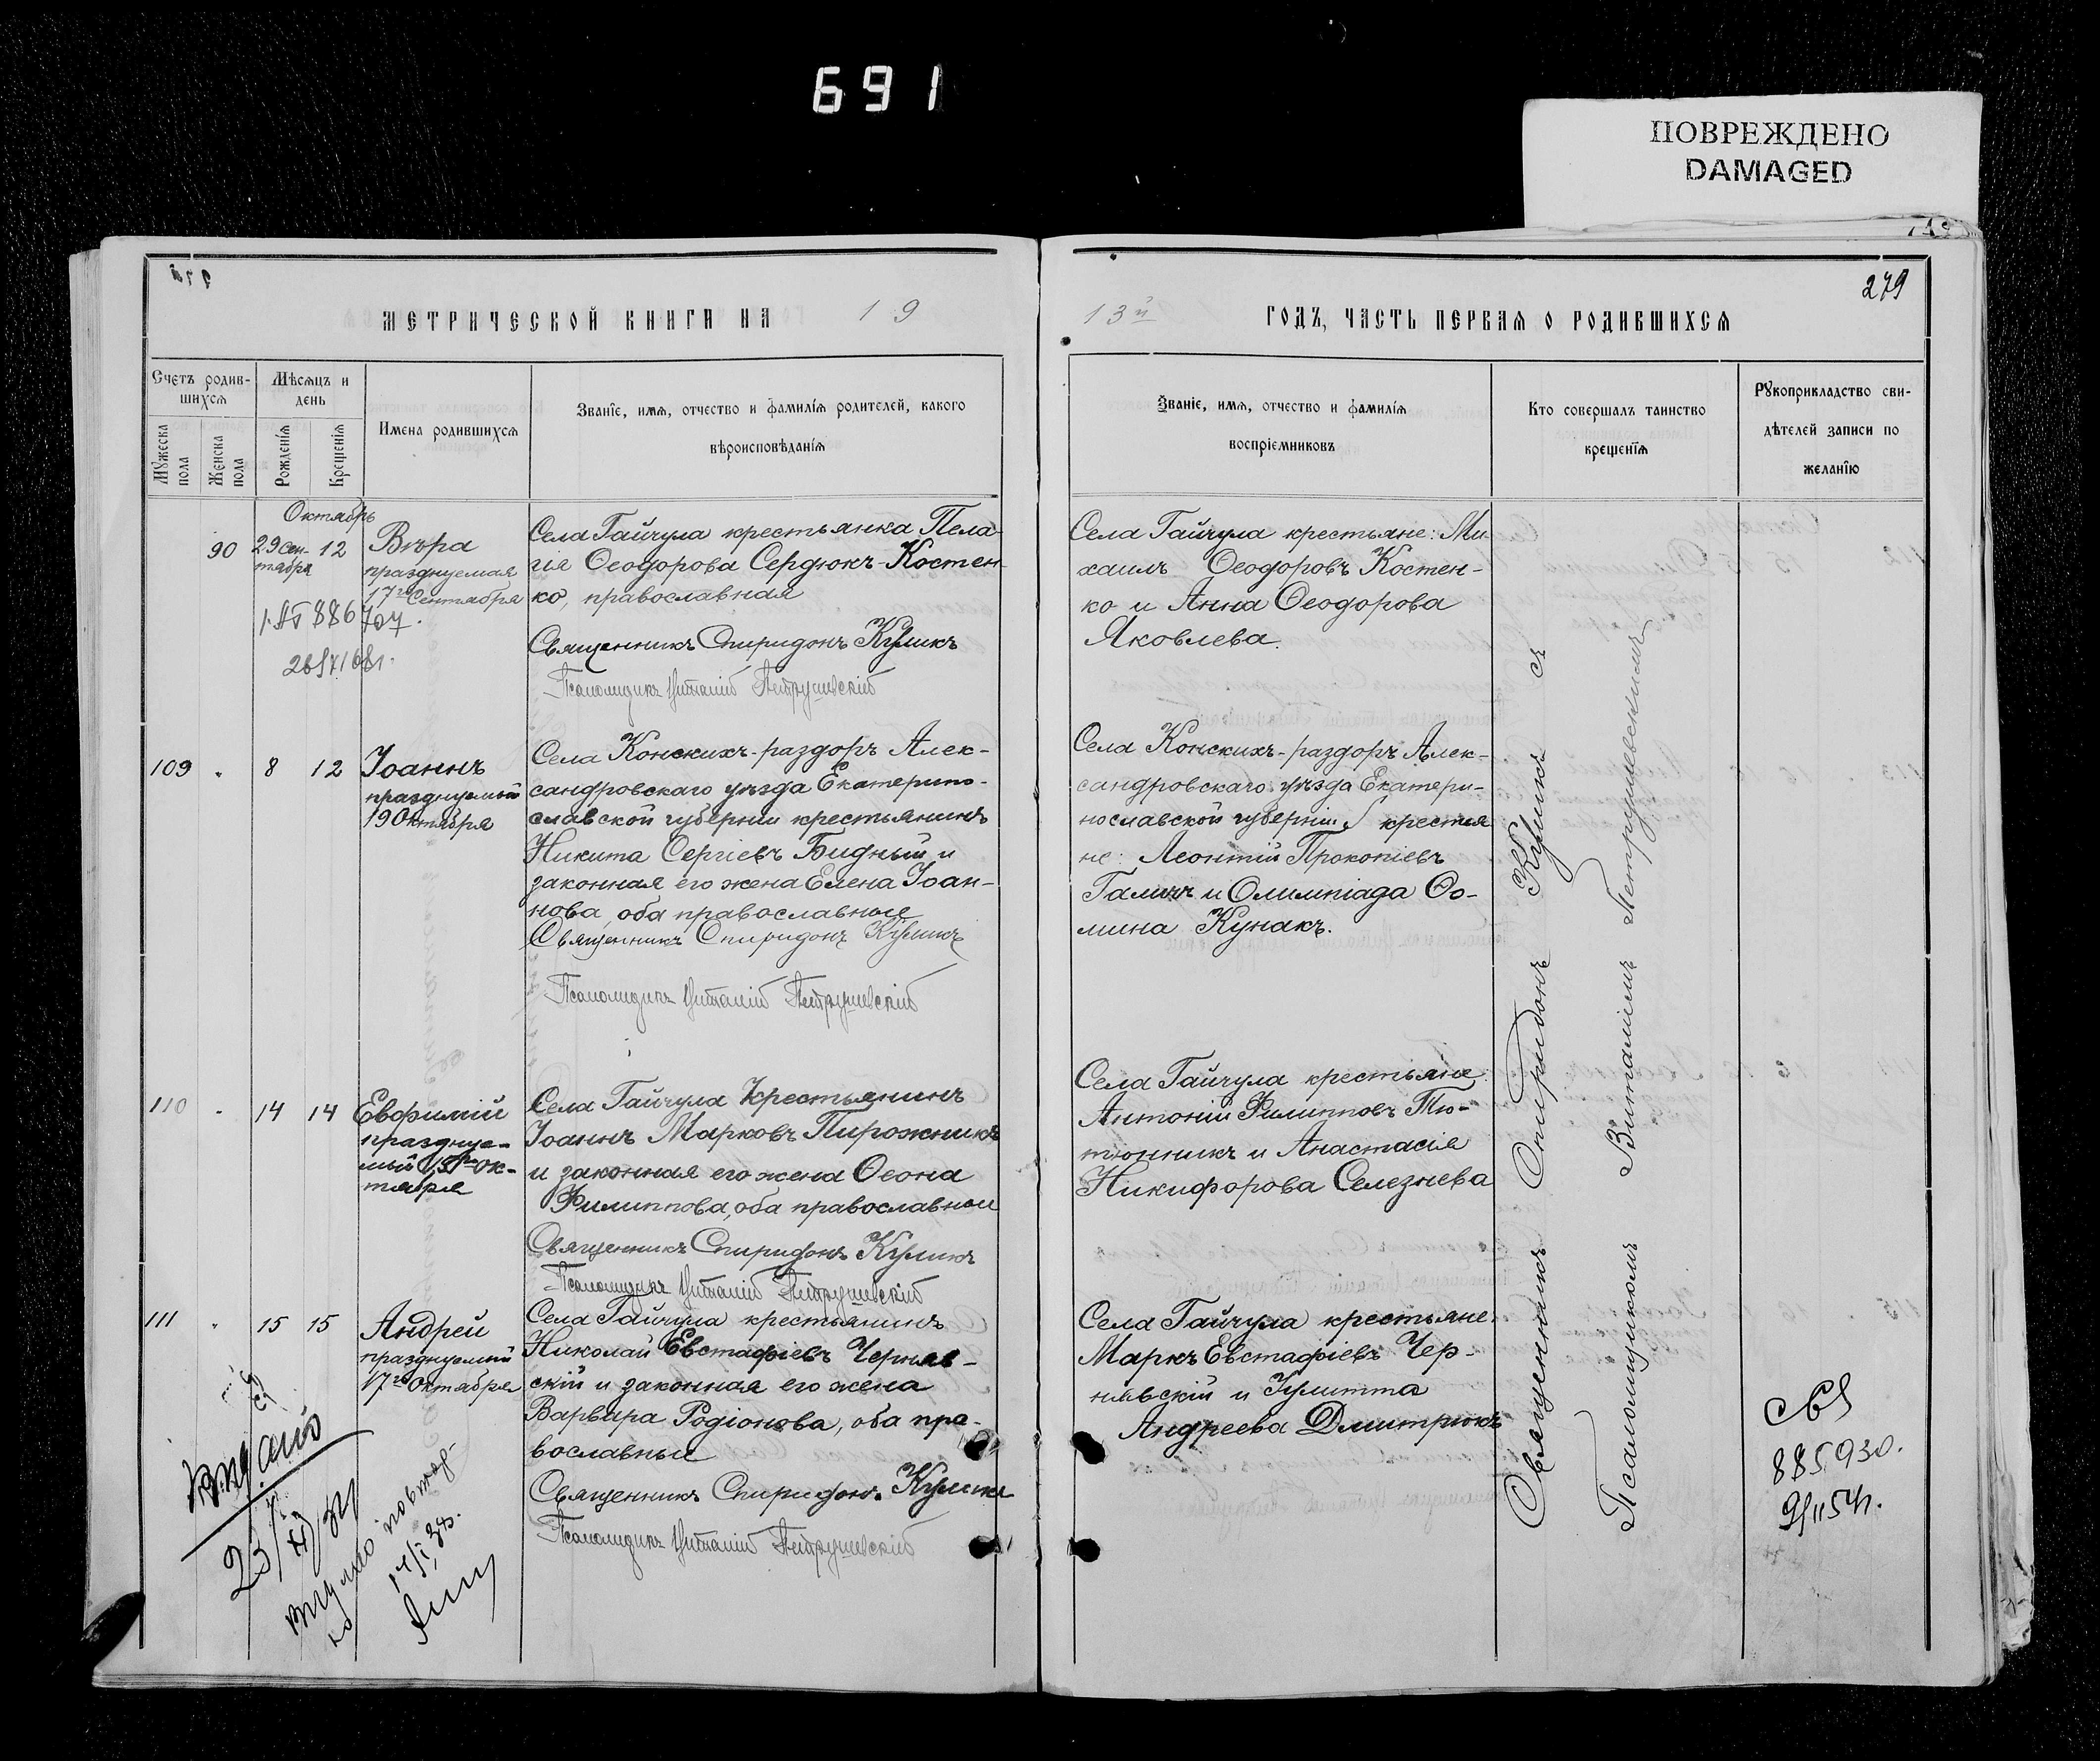 691
ПОВРЕЖДЕНО
DAMAGED
279
МЕТРИЧЕСКОЙ КНИГИ НА 19
13й ГОДЪ, ЧАСТЬ ПЕРВАЯ О РОДИВШИХСЯ
Счетъ родив-
шихся
Мужеска
пола
Женска
пола
Мѣсяцъ и
день
Рожденія
Крещенія
Имена родившихся
Званіе, имя, отчество и фамилія родителей, какого
вѣроисповѣданія
Званіе, имя, отчество и фамилія
воспріемниковъ
Кто совершалъ таинство
крещенія
Рукоприкладство сви-
дѣтелей записи по
желанію
Октябрь
90 29 Сен- 12
тября
Вѣра
празднуемая
17го Сентября
886707.
Села Гайчула крестьянка Пела-
гія Ѳеодорова Сердюкъ-Костен-
ко, православная
Священникъ Спиридонъ Куликъ
Псаломщикъ Виталій Петрушевскій
Села Гайчула крестьяне: Ми-
хаилъ Ѳеодоровъ Костен-
ко и Анна Ѳеодорова
Яковлева.
109 " 8 12
Іоаннъ
празднуемый
19 Октября
Села Конскихъ-раздоръ Алек-
сандровскаго уѣзда Екатерино-
славской губерніи крестьянинъ
Никита Сергіевъ Бидный и
законная его жена Елена Іоан-
нова, оба православные
Священникъ Спиридонъ Куликъ
Псаломщикъ Виталій Петрушевскій
Села Конскихъ-раздоръ Алек-
сандровскаго уѣзда Екатери-
нославской губерніи крестья-
не: Леонтій Прокопіевъ
Галичъ и Олимпіада Ѳо-
мина Кунакъ.
110 " 14 14
Евфимій
празднуе-
мый 15го Ок-
тября
Села Гайчула крестьянинъ
Іоаннъ Марковъ Пирожникъ
и законная его жена Ѳеона
Филиппова, оба православные
Священникъ Спиридонъ Куликъ
Псаломщикъ Виталій Петрушевскій
Села Гайчула крестьяне:
Антоній Филипповъ Тю-
тюнникъ и Анастасія
Никифорова Селезнева
111 " 15 15
Андрей
празднуемый
17го Октября
Села Гайчула крестьянинъ
Николай Евстафіевъ Черняв-
скій и законная его жена
Варвара Родіонова, оба пра-
вославные
Священникъ Спиридонъ Куликъ
Псаломщикъ Виталій Петрушевскій
Села Гайчула крестьяне:
Маркъ Евстафіевъ Чер-
нявскій и Іулитта
Андреева Дмитрюкъ
Священникъ Спиридонъ Куликъ съ
Псаломщикомъ Виталіемъ Петрушевскимъ
885930.